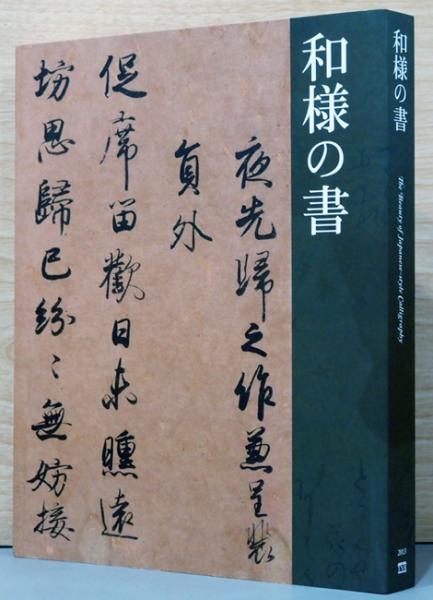 和様の書
夜先歸之作兼呈裴
負外
促席留歡日未曛遠
坊思歸已紛〻無妨接
和様の書
The Beauty of Japanese-style Calligraphy
2013